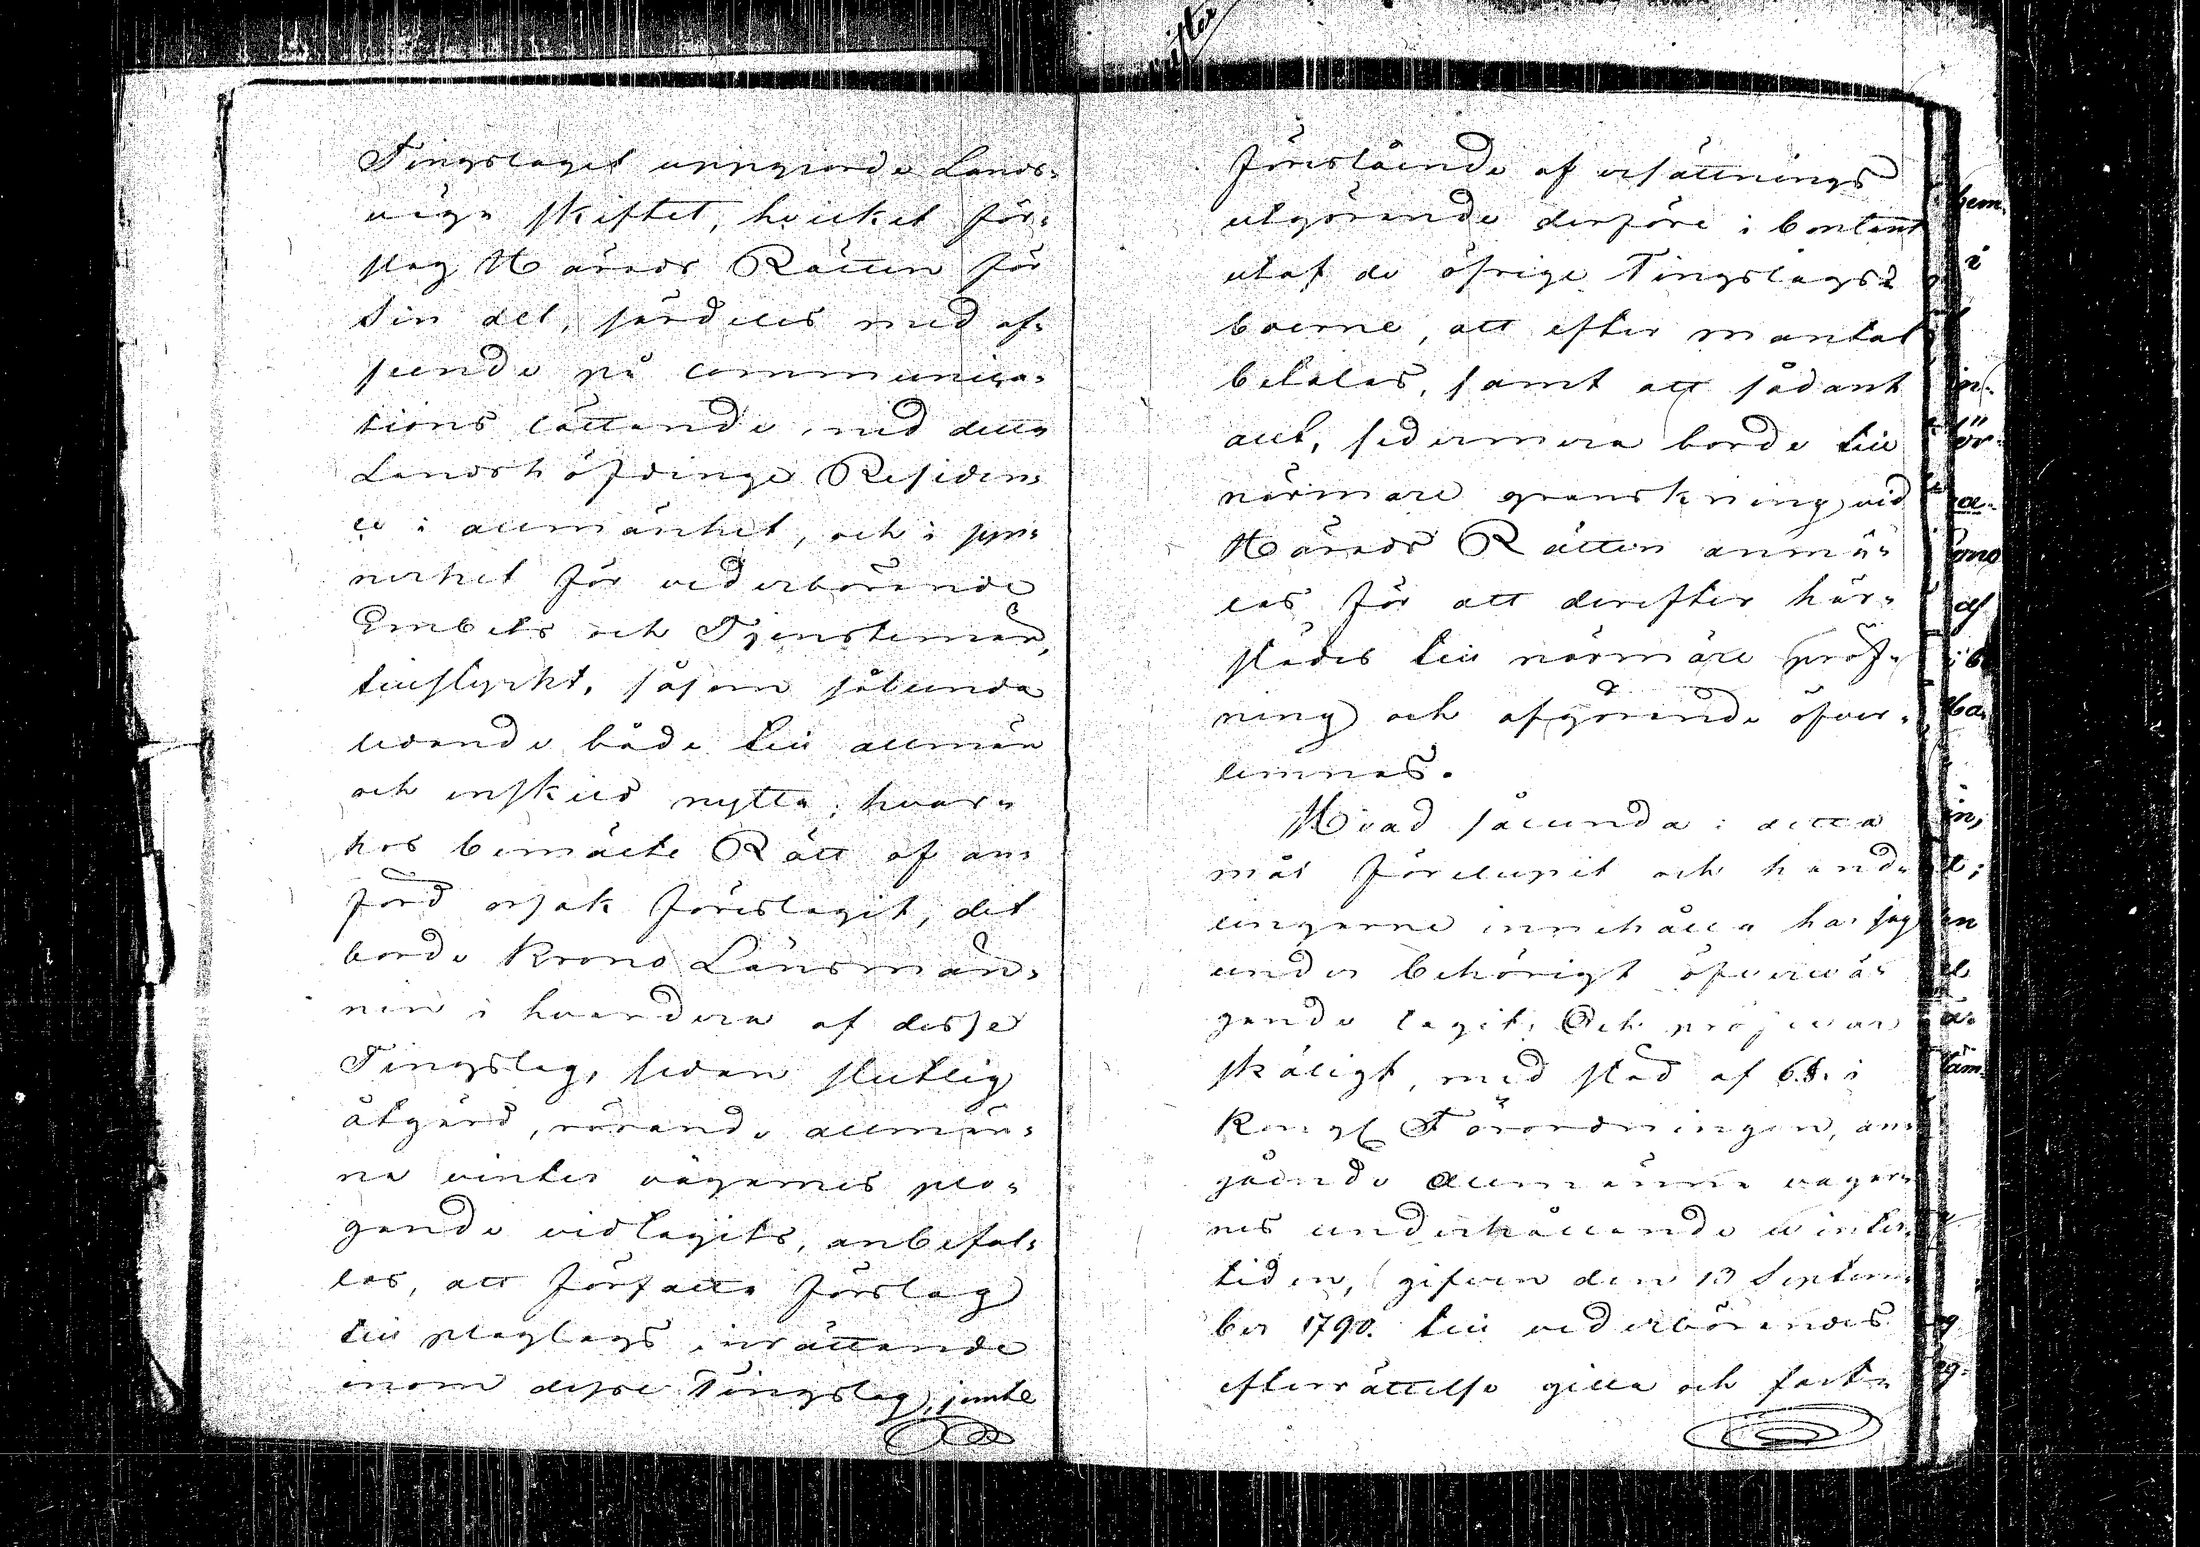 Tingslaget uppgiorde Lands-
vägs skiftet, hvilket för-
slag Härads Rätten för
sin del, särdeles med af-
seende på communica-
tions lättande, vid detta
Landshöfdinge Residen-
ce i allmänhet, och i syn-
nerhet för vederbörande
Embets och Tjenstemän,
tillstyrkt, såsom sålunda
ledande både till allmän
och enskild nytta; hvar-
hos bemälte Rätt af an-
förd orsak föreslagit, det
borde Krono Länsmän-
nen i hvardera af desse
Tingslag, sedan slutlig
åtgärd, rörande allmän-
na vinter vägarnes plo-
gande vidtagits, anbefal-
las, att författa förslag
till ploglags inrättande
inom desse Tingslag, jemte
föreslående af ersättnings
utgörande derföre i contant
utaf de öfrige Tingslags-
boerne, att efter mantal
betalas, samt att sådant
allt, sedermera borde till
närmare granskning vid
Härads Rätten anmä-
las för att derefter här-
städes till närmare pröf-
ning och afgörande öfver-
lemnas.
Hvad sålunda i detta
mål förelupit och hand-
lingarne innehålla har jag
under behörigt öfvervä-
gande tagit; Och pröfvar
skäligt, med stöd af 6 §. i
Kongl Förordningen, an-
gående allmänna vägar-
nes underhållande winter-
tiden, gifven den 13 Septem-
ber 1790. till vederbörandes
efterrättelse gilla och fast-